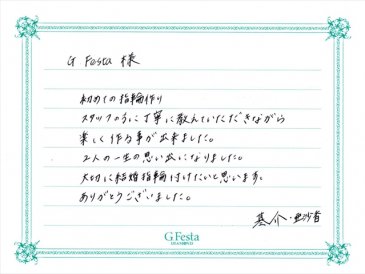 G Festa 様
初めての指輪作り
スタッフの方に丁寧に教えていただきながら
楽しく作る事が出来ました。
2人の一生の思い出になりました。
大切に結婚指輪付けたいと思います。
ありがとうございました。
基介・亜沙香
G Festa
DIAMOND